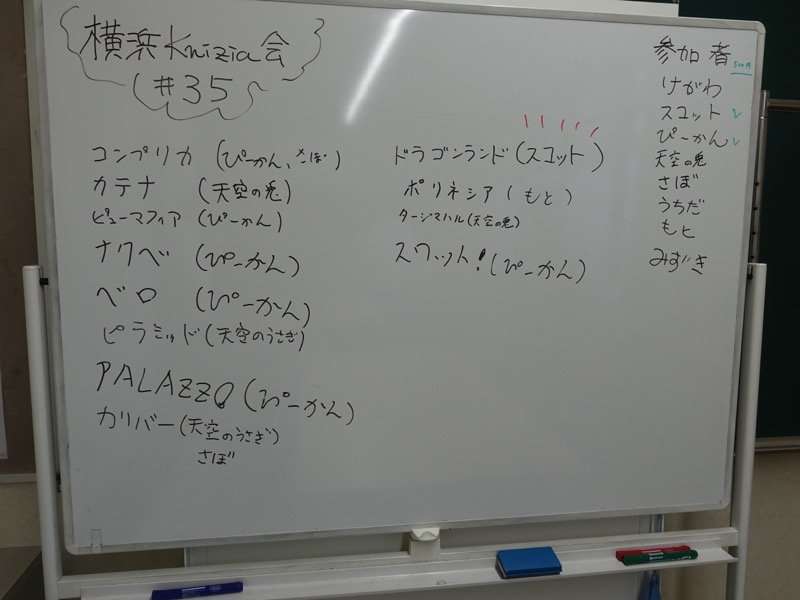 横浜Knizia会
#35
コンプリカ (ぴーかん、さぼ)
カテナ (天空の兎)
ピューマフィア (ぴーかん)
ナクベ (ぴーかん)
ベロ (ぴーかん)
ピラミッド(天空のうさぎ)
PALAZZO (ぴーかん)
カリバー(天空のうさぎ)
さぼ
ドラゴンランド(スコット)
ポリネシア(もと)
タージマハル(天空の兎)
スワット!(ぴーかん)
参加者
500円
けがわ
スコット
ぴーかん
天空の兎
さぼ
うちだ
もと
みずき